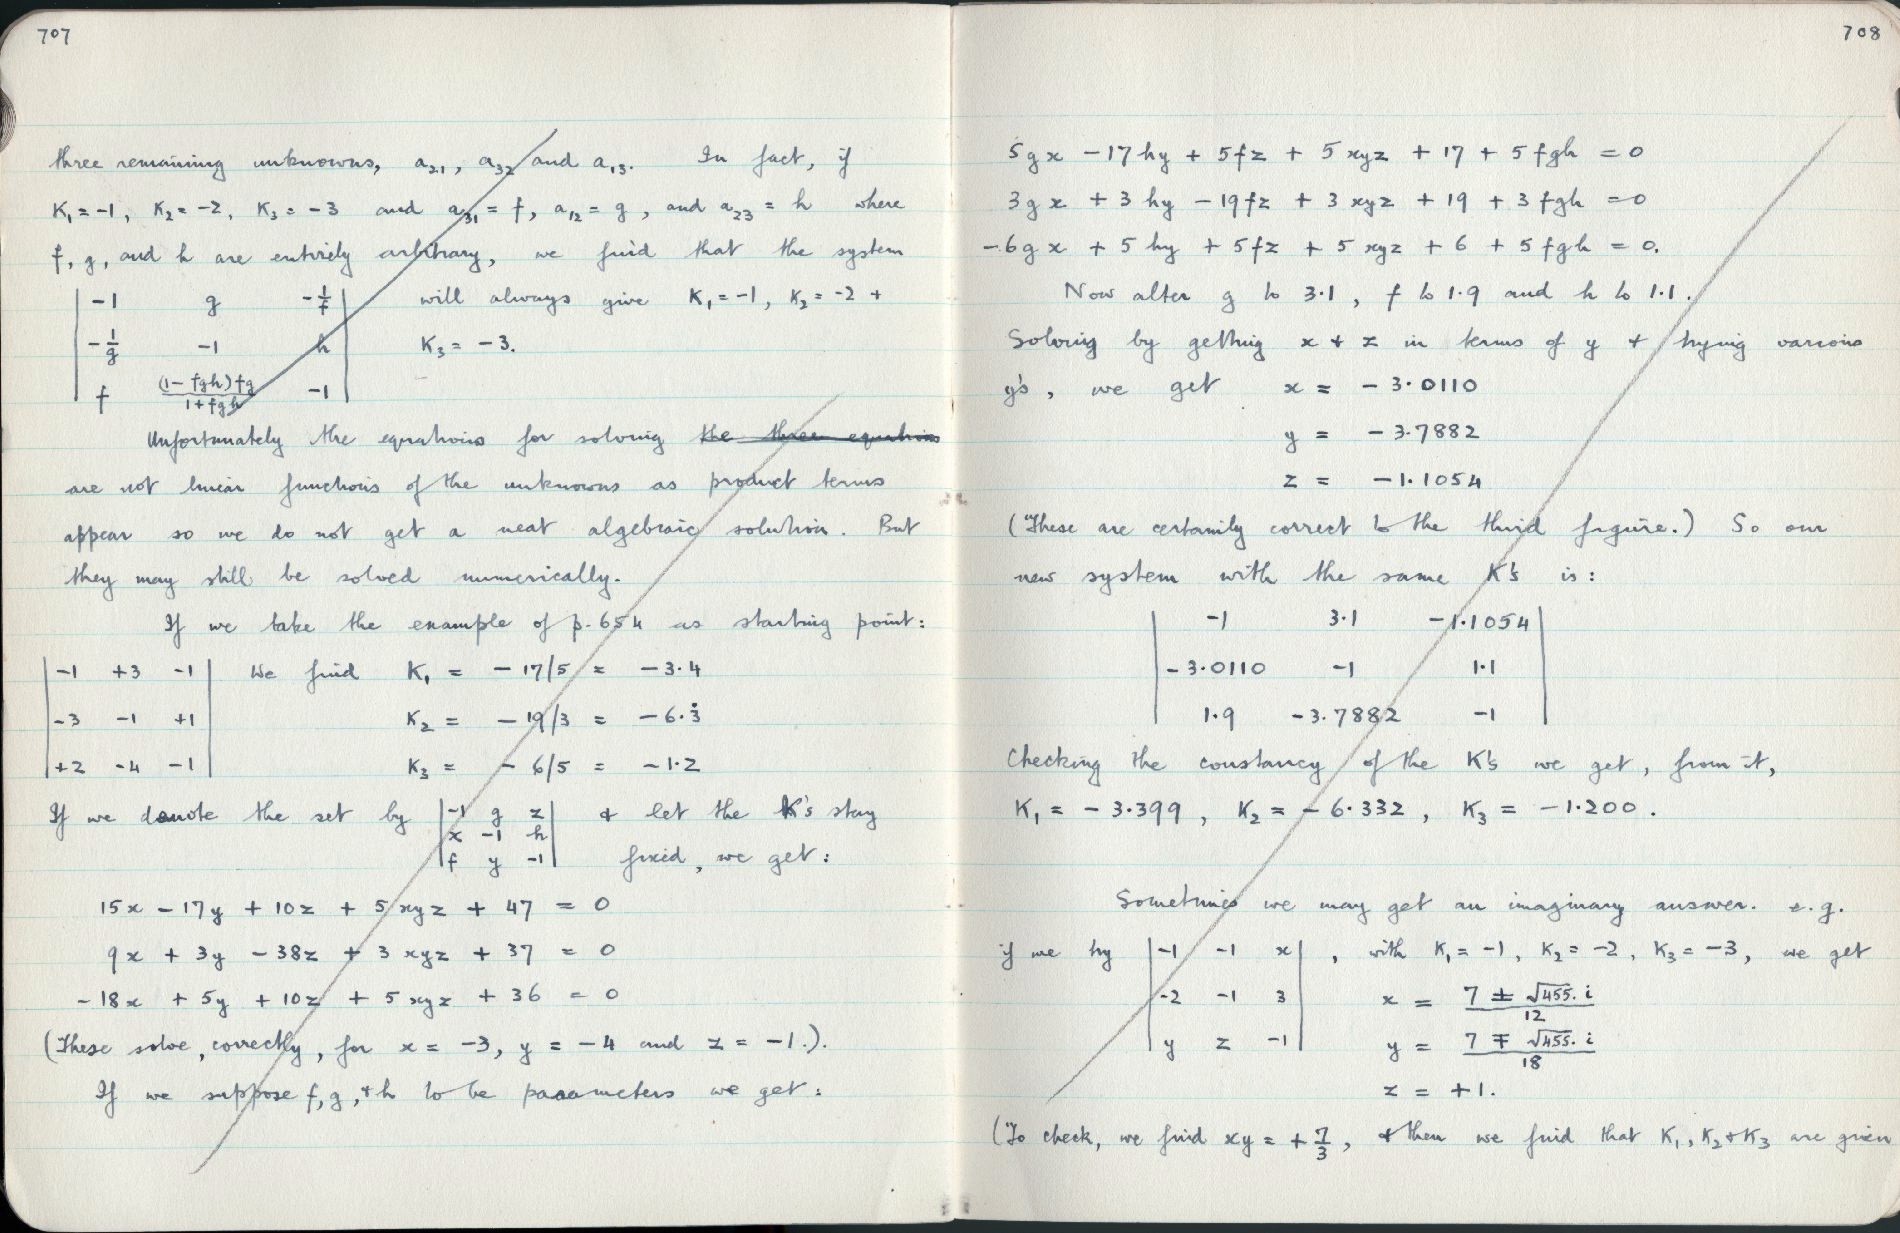 707
three remaining unknowns, a₂₁, a₃₂ and a₁₃. In fact, if
K₁ = -1, K₂ = -2, K₃ = -3 and a₃₁ = f, a₁₂ = g, and a₂₃ = h where
f, g, and h are entirely arbitrary, we find that the system
| -1 g -1/f | will always give K₁ = -1, K₂ = -2 +
| -1/g -1 h | K₃ = -3.
| f (1 - fgh)fg/(1 + fgh) -1 |
Unfortunately the equations for solving the three equations
are not linear functions of the unknowns as product terms
appear so we do not get a neat algebraic solution. But
they may still be solved numerically.
If we take the example of p. 654 as starting point:
| -1 +3 -1 | We find K₁ = - 17/5 = -3.4
| -3 -1 +1 | K₂ = - 19/3 = -6.3̇
| +2 -4 -1 | K₃ = - 6/5 = -1.2
If we denote the set by | -1 g z | & let the K's stay
| x -1 h |
| f y -1 | fixed, we get:
15x - 17y + 10z + 5xyz + 47 = 0
9x + 3y - 38z + 3xyz + 37 = 0
-18x + 5y + 10z + 5xyz + 36 = 0
(These solve, correctly, for x = -3, y = -4 and z = -1.).
If we suppose f, g, + h to be parameters we get:
708
5gx - 17hy + 5fz + 5xyz + 17 + 5fgh = 0
3gx + 3hy - 19fz + 3xyz + 19 + 3fgh = 0
-6gx + 5hy + 5fz + 5xyz + 6 + 5fgh = 0.
Now alter g to 3.1, f to 1.9 and h to 1.1.
Solving by getting x + z in terms of y + trying various
y's, we get x = -3.0110
y = -3.7882
z = -1.1054
(These are certainly correct to the third figure.) So our
new system with the same K's is:
| -1 3.1 -1.1054 |
| -3.0110 -1 1.1 |
| 1.9 -3.7882 -1 |
Checking the constancy of the K's we get, from it,
K₁ = -3.399, K₂ = -6.332, K₃ = -1.200.
Sometimes we may get an imaginary answer. e.g.
if we try | -1 -1 x |, with K₁ = -1, K₂ = -2, K₃ = -3, we get
| -2 -1 3 | x = (7 ± √455. i)/12
| y z -1 | y = (7 ∓ √455. i)/18
z = +1.
(To check, we find xy = + 7/3, & then we find that K₁, K₂ + K₃ are given